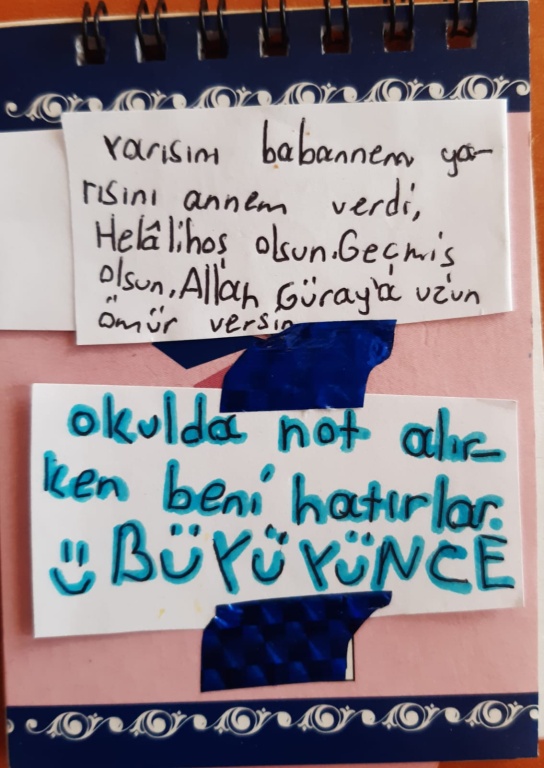 Yarısını babannem ya-
rısını annem verdi,
Helâlihoş olsun. Geçmiş
olsun. Allah Güray'a uzun
ömür versin
okulda not alır-
ken beni hatırlar.
BÜYÜYÜNCE